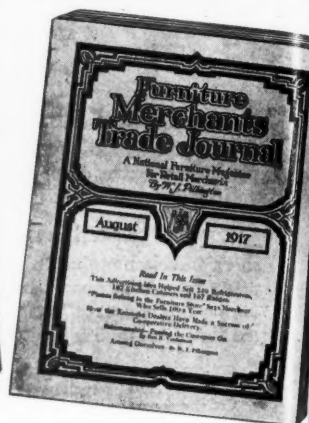 Furniture
Merchants
Trade Journal
A National Furniture Magazine
For Retail Merchants
By W. J. Pilkington
August
1917
Read In This Issue
This Advertising Idea Helped Sell 240 Refrigerators,
182 Kitchen Cabinets and 167 Ranges.
"Pianos Belong in the Furniture Store" Says Merchant
Who Sells 100 a Year
How the Dealers Have Made a Success of
Cooperative Delivery.
Passing the Company On
By Ben R. Vardaman
Among Ourselves By W. J. Pilkington